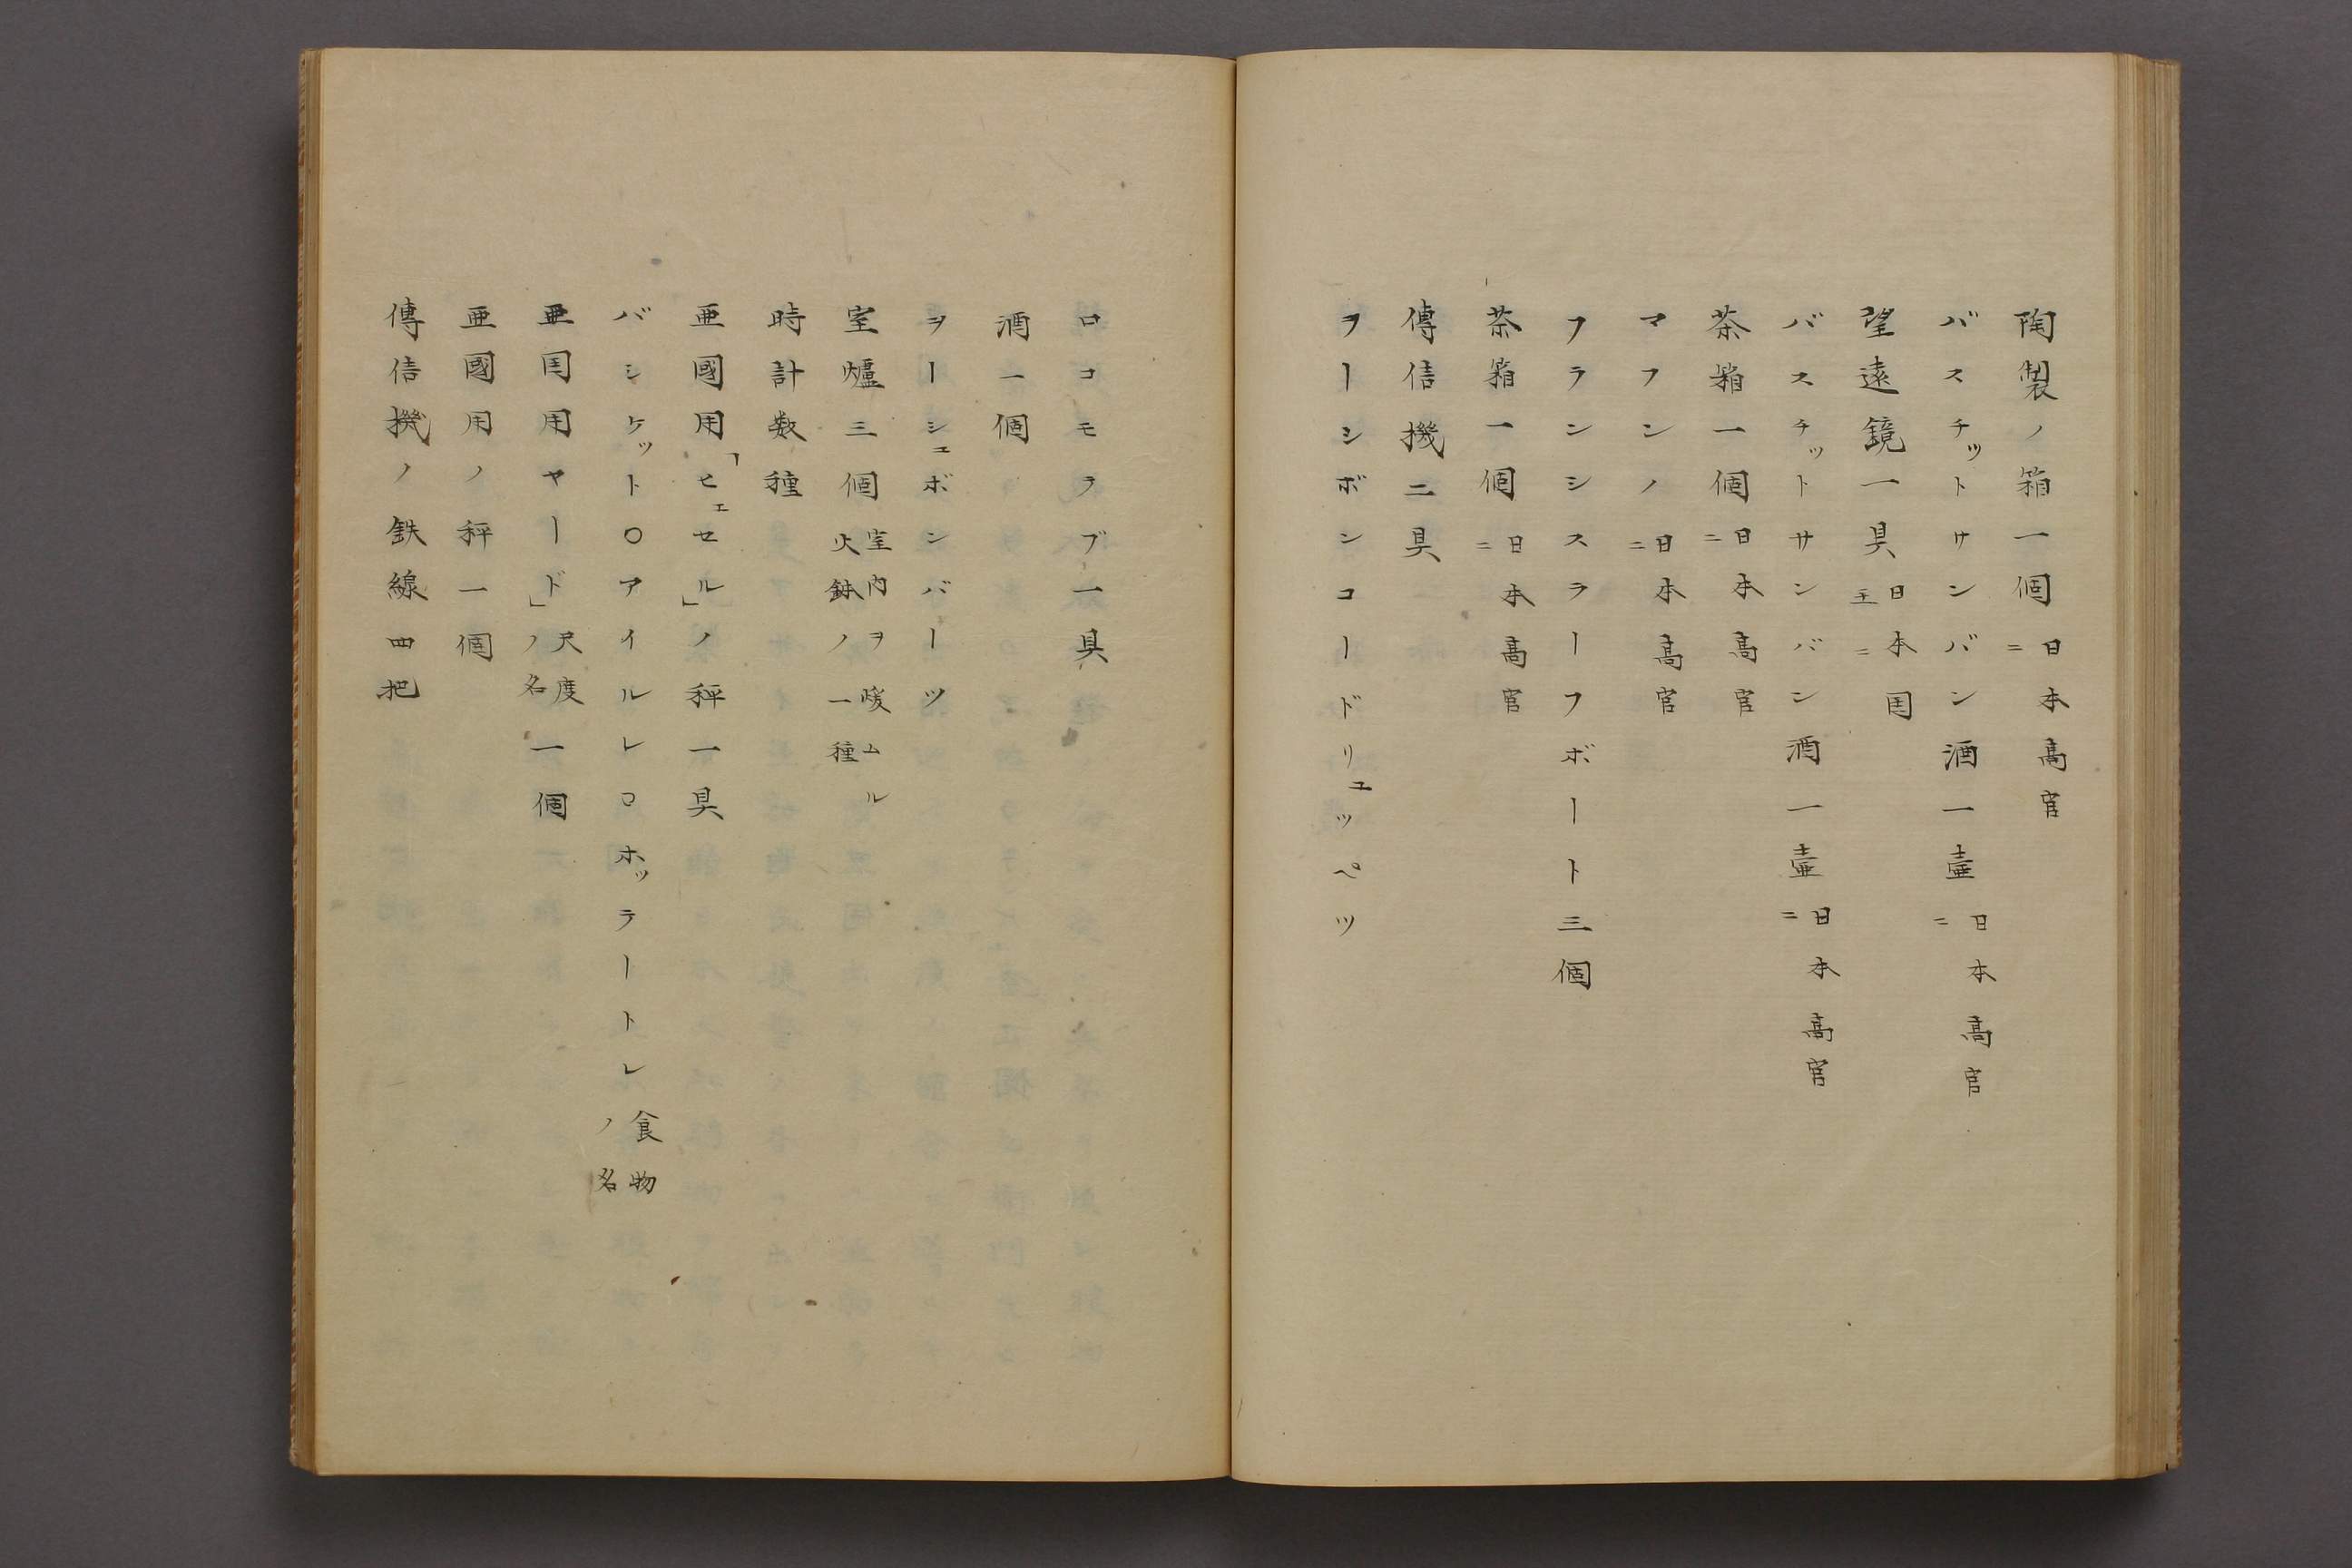 陶製ノ箱一個日本高官ニ
バスチットサンバン酒一壷日本高官ニ
望遠鏡一具日本国王ニ
バスチットサンバン酒一壷日本高官ニ
茶箱一個日本高官ニ
マフンノ日本高官ニ
フランシスラーフボート三個
茶箱一個日本高官ニ
傳信機二具
ヲーシボンコードリュッペツ
ロコモラブ一具
酒一個
ヲーシュボンバーツ
室爐三個室内ヲ煖ムル火鉢ノ一種
時計数種
亜國用「ヒェセル」ノ秤一具
バシケットロアイルレロホッラートレ食物ノ名
亜囯用ヤード」尺度ノ名一個
亜國用ノ秤一個
傳信機ノ鉄線四把